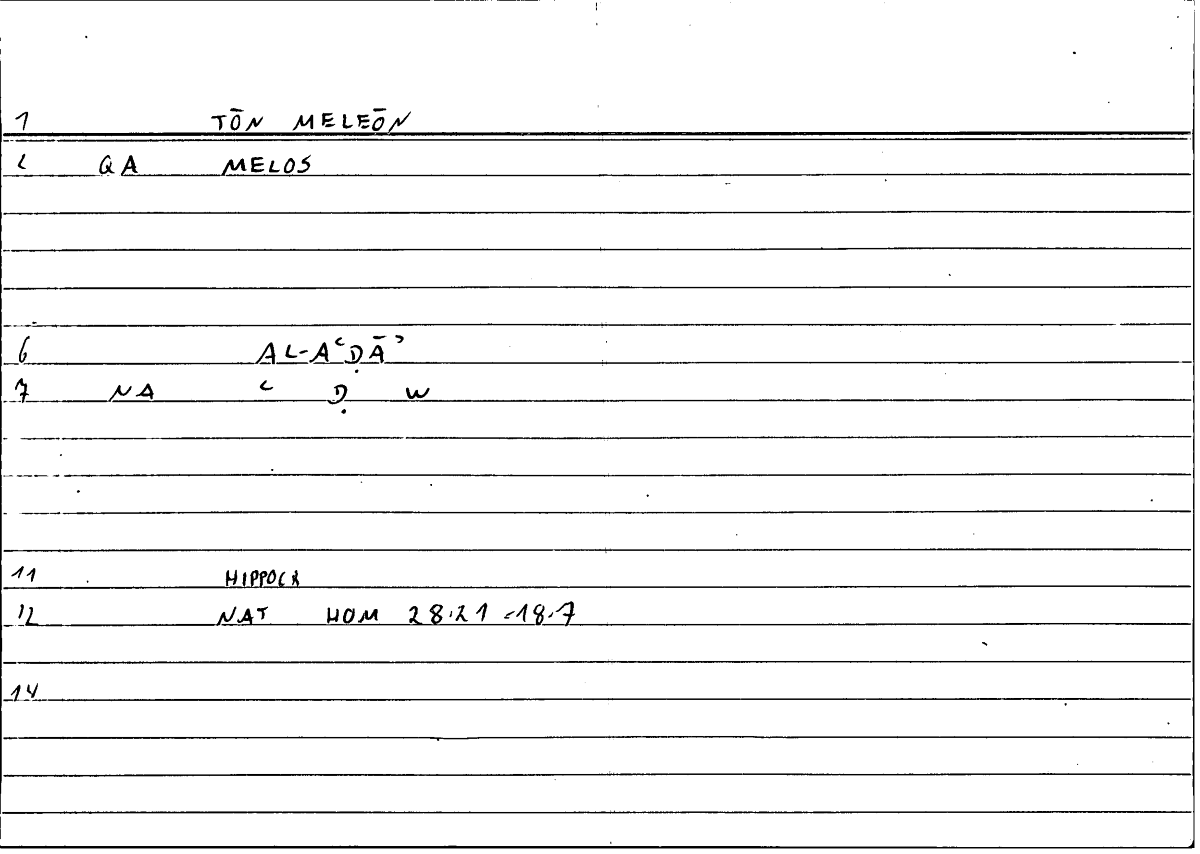 1 TŌN MELEŌN
2 QA MELOS
6 AL-AʿḌĀʾ
7 NA ʿ Ḍ W
11 HIPPOCR
12 NAT HOM 28.21 =18.7
14